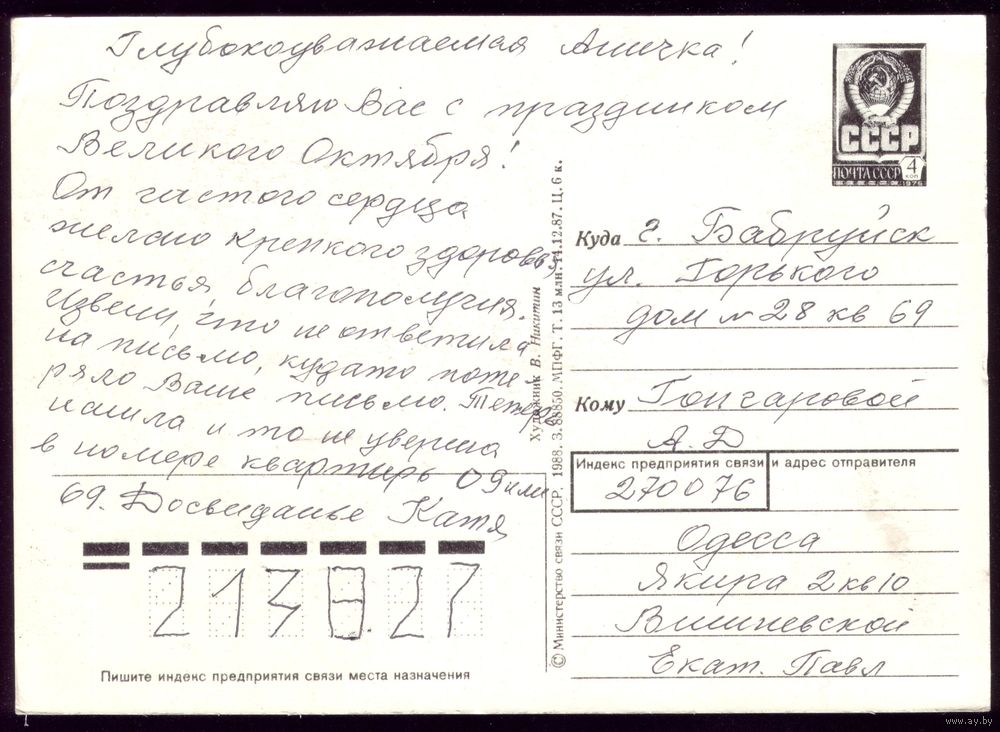 Глубокоуважаемая Аничка!
Поздравляю Вас с праздником
Великого Октября!
От чистого сердца
желаю крепкого здоровья,
счастья, благополучия.
Извени, что не ответила
на письмо, кудато поте
ряло Ваше письмо. Теперь
нашла и то не уверина
в номере квартиры 09 или
69. Досвиданье Катя
213827
Пишите индекс предприятия связи места назначения
© Министерство связи СССР. 1988. З. 88850. МПФГ. Т. 13 млн. 14.12.87. Ц. 6 к.
Художник В. Никитин
СССР
ПОЧТА СССР
4
КОП
1976
Куда г. Бабруйск
ул. Горького
дом № 28 кв 69
Кому Гончаровой
А. Д
Индекс предприятия связи и адрес отправителя
270076
Одесса
Якира 2 кв 10
Вишневской
Екат. Павл
www.ay.by